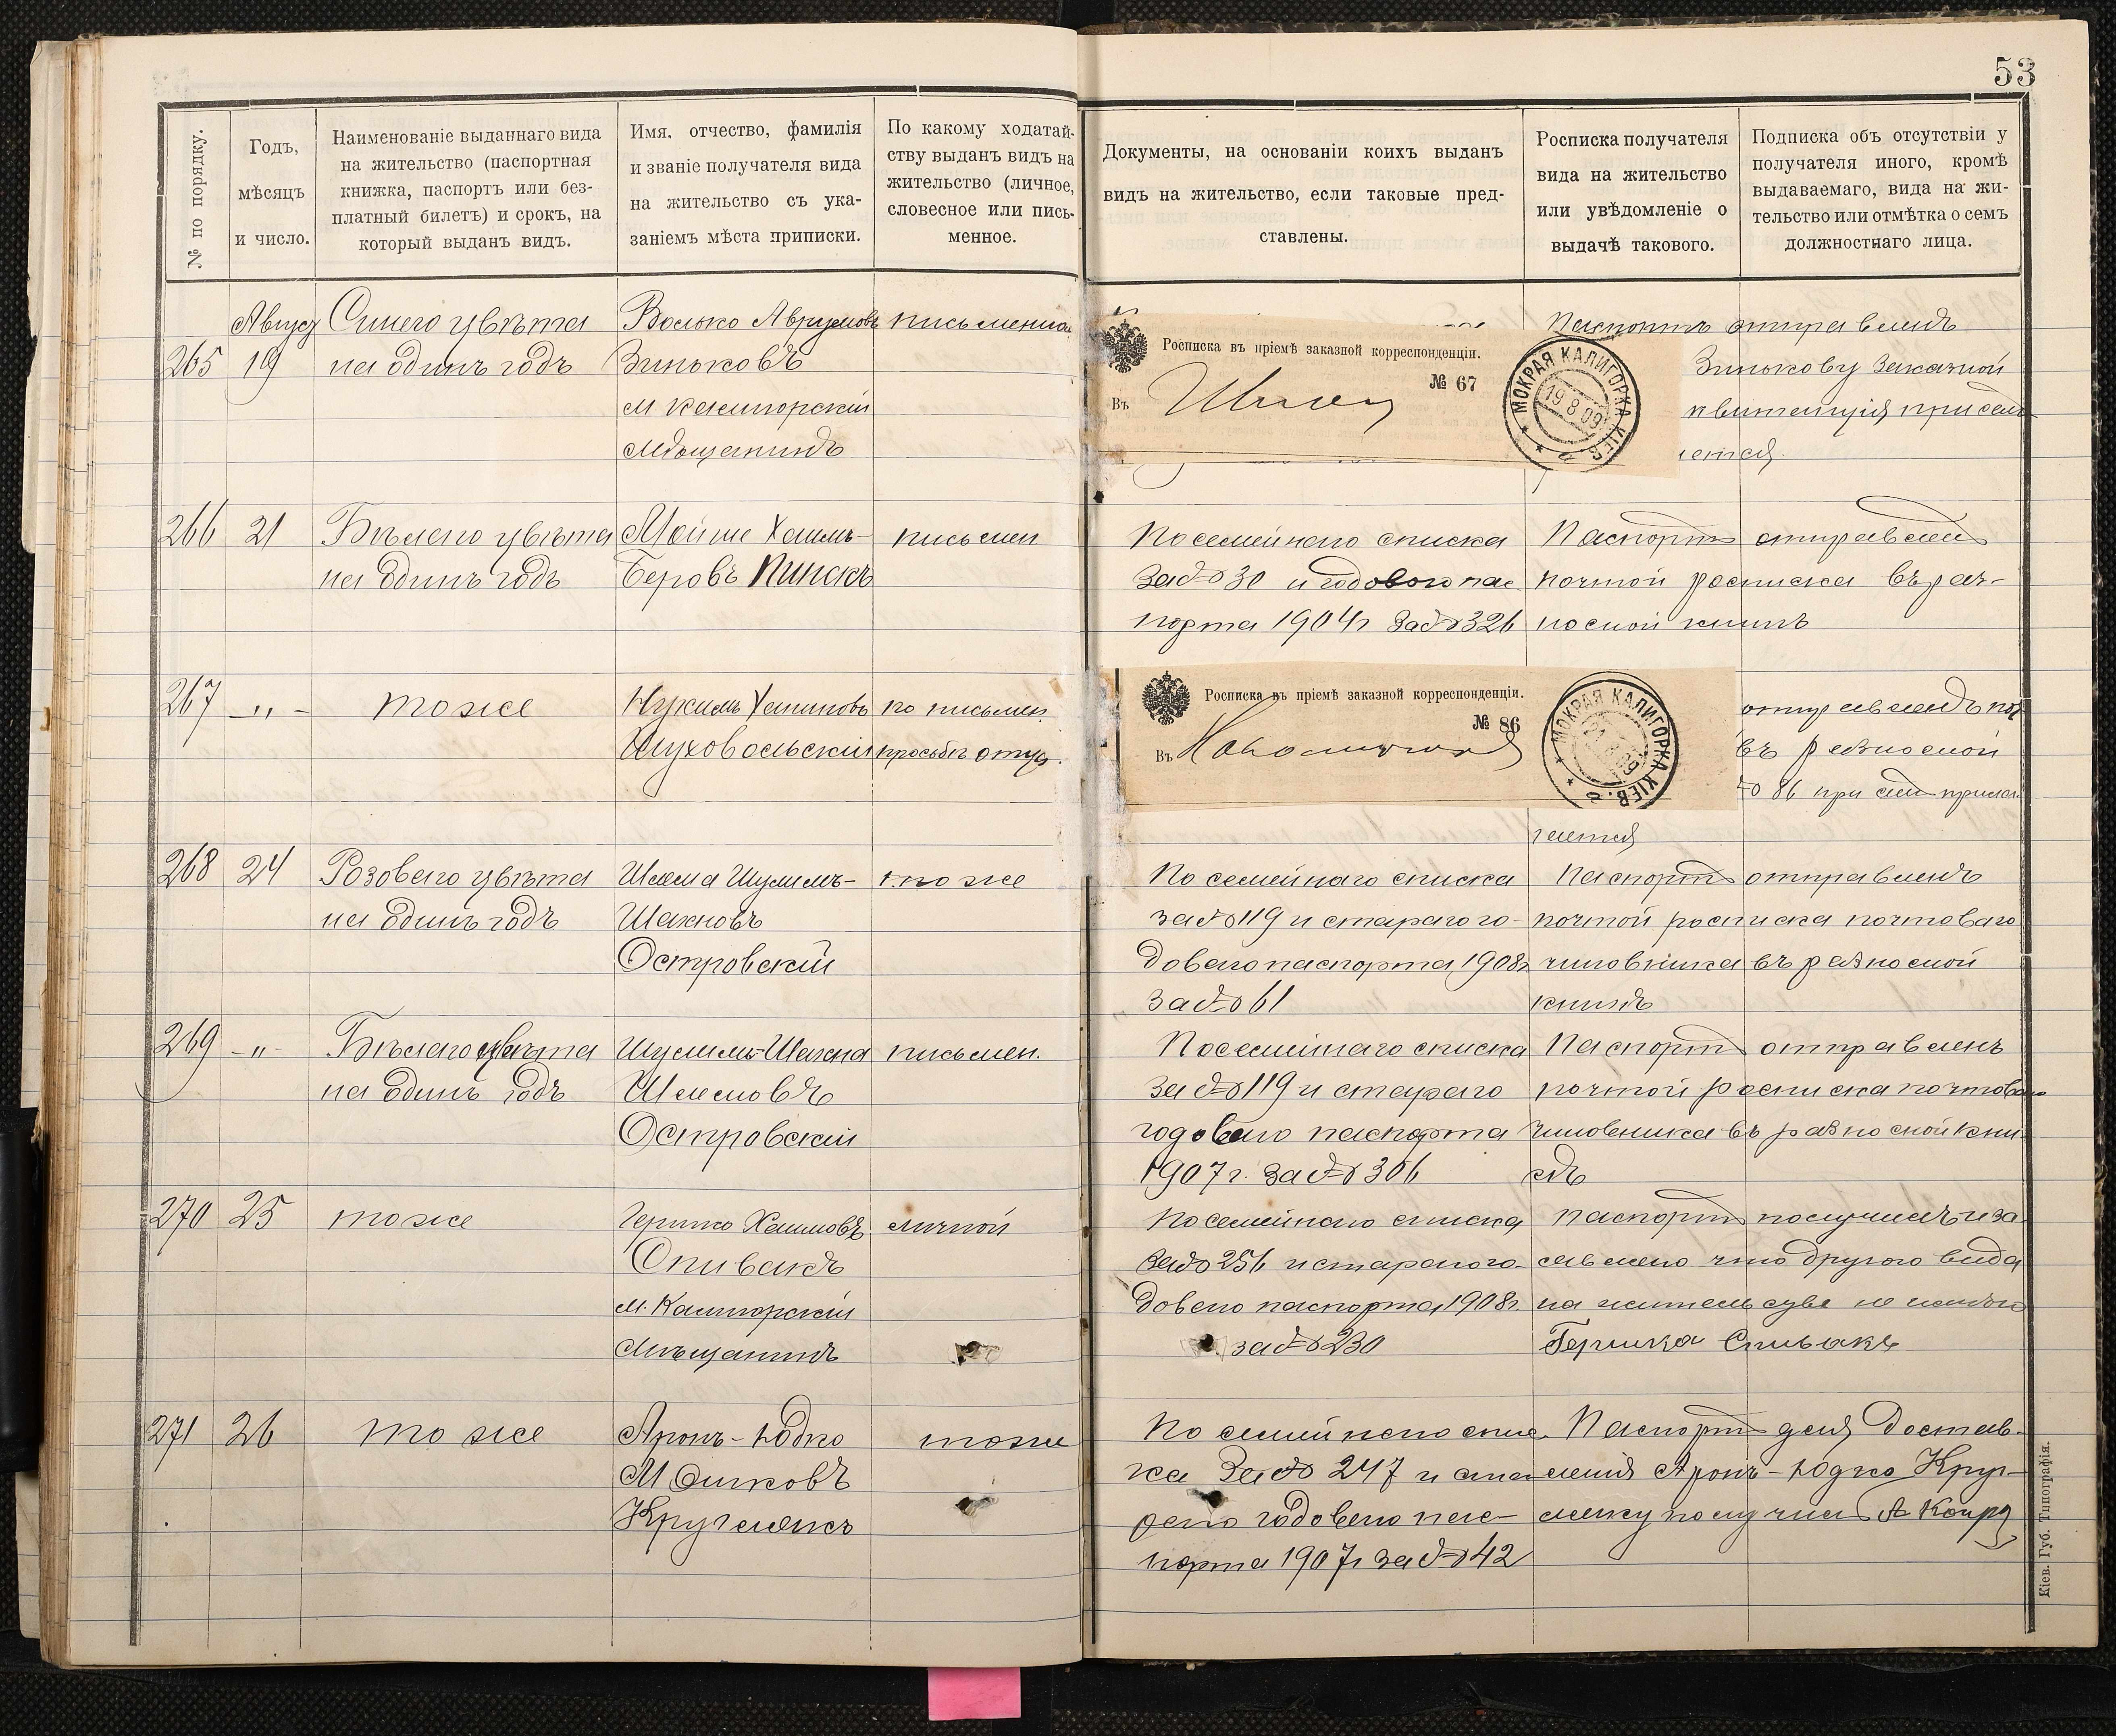 53
№ по порядку.
Годъ,
мѣсяцъ
и число.
Наименованіе выданнаго вида
на жительство (паспортная
книжка, паспортъ или без-
платный билетъ) и срокъ, на
который выданъ видъ.
Имя, отчество, фамилія
и званіе получателя вида
на жительство съ ука-
заніемъ мѣста приписки.
По какому ходатай-
ству выданъ видъ на
жительство (личное,
словесное или пись-
менное.
Документы, на основаніи коихъ выданъ
видъ на жительство, если таковые пред-
ставлены.
Росписка получателя
вида на жительство
или увѣдомленіе о
выдачѣ такового.
Подписка объ отсутствіи у
получателя иного, кромѣ
выдаваемаго, вида на жи-
тельство или отмѣтка о семъ
должностнаго лица.
265
Август
19
Синего цвѣта
на одинъ годъ
Волько Аврумовъ
Зиньковъ
м Калигорскій
Мѣщанинъ
письменно
Росписка въ пріемѣ заказной корреспонденціи.
№ 67
Въ
МОКРАЯ КАЛИГОРКА КІЕВ.
19 8 09
Паспортъ отправленъ
Зинькову заказной
квитанція при семъ
266
21
Бѣлаго цвѣта
на одинъ годъ
Мойше Хаимъ-
Беровъ Пинскъ
писъмен
По семейнаго списка
за № 30 и годового пас
порта 1904г за № 326
Паспортъ отправлен
почтой росписка въ раз-
носной книгѣ
267
-"-
тоже
Нухимъ
Шуховольскій
по письмен.
просьбѣ отца.
Росписка въ пріемѣ заказной корреспонденціи.
№ 86
Въ
МОКРАЯ КАЛИГОРКА КІЕВ.
отправленъ поч
въ разносной
№ 86 при сем прила
гается
268
24
Розоваго цвѣта
на одинъ годъ
Шлема Шулимъ-
Шахновъ
Островскій
тоже
По семейнаго списка
за № 119 и стараго го-
доваго паспорта 1908г
за № 61
Паспортъ отправленъ
почтой росписка почтоваго
чиновника въ разносной
книгѣ
269
-"-
Бѣлаго цвѣта
на одинъ годъ
Шулимъ-Шахна
Шлемовъ
Островскій
письмен.
По семейнаго списка
за № 119 и стараго
годоваго паспорта
1907 г. за № 306
Паспортъ отправленъ
почтой росписка почтоваго
чиновника въ разносной кни-
гѣ
270
25
тоже
Гершко Хаимовъ
Спивакъ
м. Калигорскій
Мѣщанинъ
личной
По семейнаго списка
за № 256 и стараго го-
доваго паспорта 1908г.
за № 230
Паспортъ получилъ и за-
явлено что другого вида
на жительство не имѣю
Гершка Спивакъ
271
26
тоже
Аронъ-Юдко
Мошковъ
Круглякъ
тоже
По семейнаго спис-
ка за № 247 и ста-
раго годоваго пас-
порта 1907г за № 42
Паспортъ для достав-
ленія Аронъ-Юдко Круг-
ляку получилъ
Кіев. Губ. Типографія.